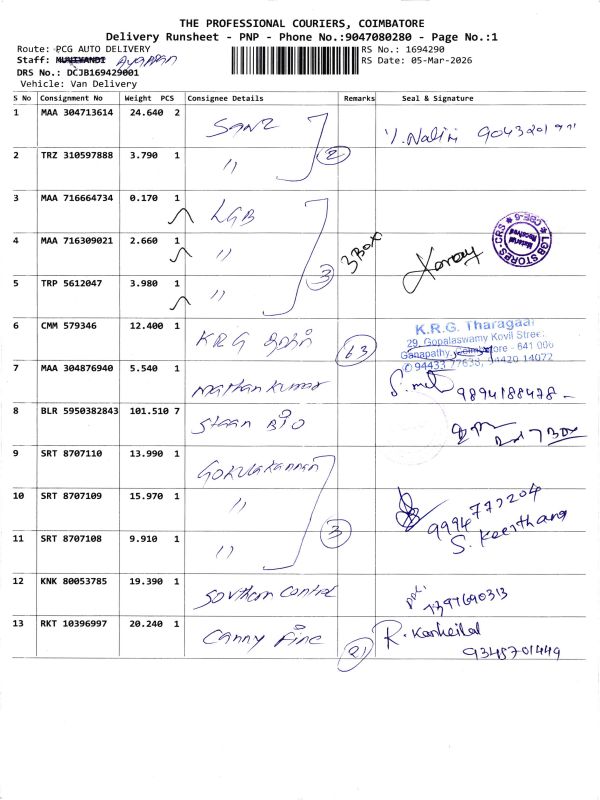 THE PROFESSIONAL COURIERS, COIMBATORE
Delivery Runsheet - PNP - Phone No.:9047080280 - Page No.:1
Route: PCG AUTO DELIVERY
RS No.: 1694290
Staff: MUNIYANDI Ayappan
RS Date: 05-Mar-2026
DRS No.: DCJB169429001
Vehicle: Van Delivery
S No Consignment No Weight PCS Consignee Details Remarks Seal & Signature
1 MAA 304713614 24.640 2 SANZ
2 TRZ 310597888 3.790 1 " 2
3 MAA 716664734 0.170 1 LGB
4 MAA 716309021 2.660 1 " 3 Box
LGB STORES-CRS CBE-6
Material Received
5 TRP 5612047 3.980 1 " 3
6 CMM 579346 12.400 1 K.R.G
K.R.G. Tharagai
29, Gopalaswamy Kovil Street
Ganapathy, Coimbatore - 641 006
7 MAA 304876940 5.540 1 Mathan Kumar 9894188478
8 BLR 5950382843 101.510 7 Staan Bio 7 Box
9 SRT 8707110 13.990 1 Gokulakannan
10 SRT 8707109 15.970 1 " 9994772204
11 SRT 8707108 9.910 1 " 3 S. Keerthana
12 KNK 80053785 19.390 1 Southern Control
13 RKT 10396997 20.240 1 Canny Fine 21 R.
9345701449